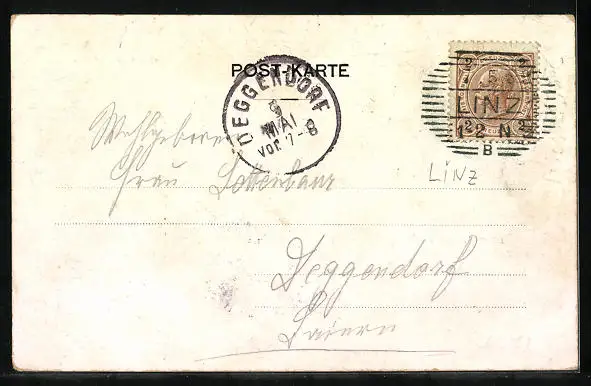 POST-KARTE
DEGGENDORF
9
MAI
VOR 7-8
2 2
5
LINZ
12 N
2 2
B
LINZ
Wohlgeboren
Frau
Deggendorf
Baiern